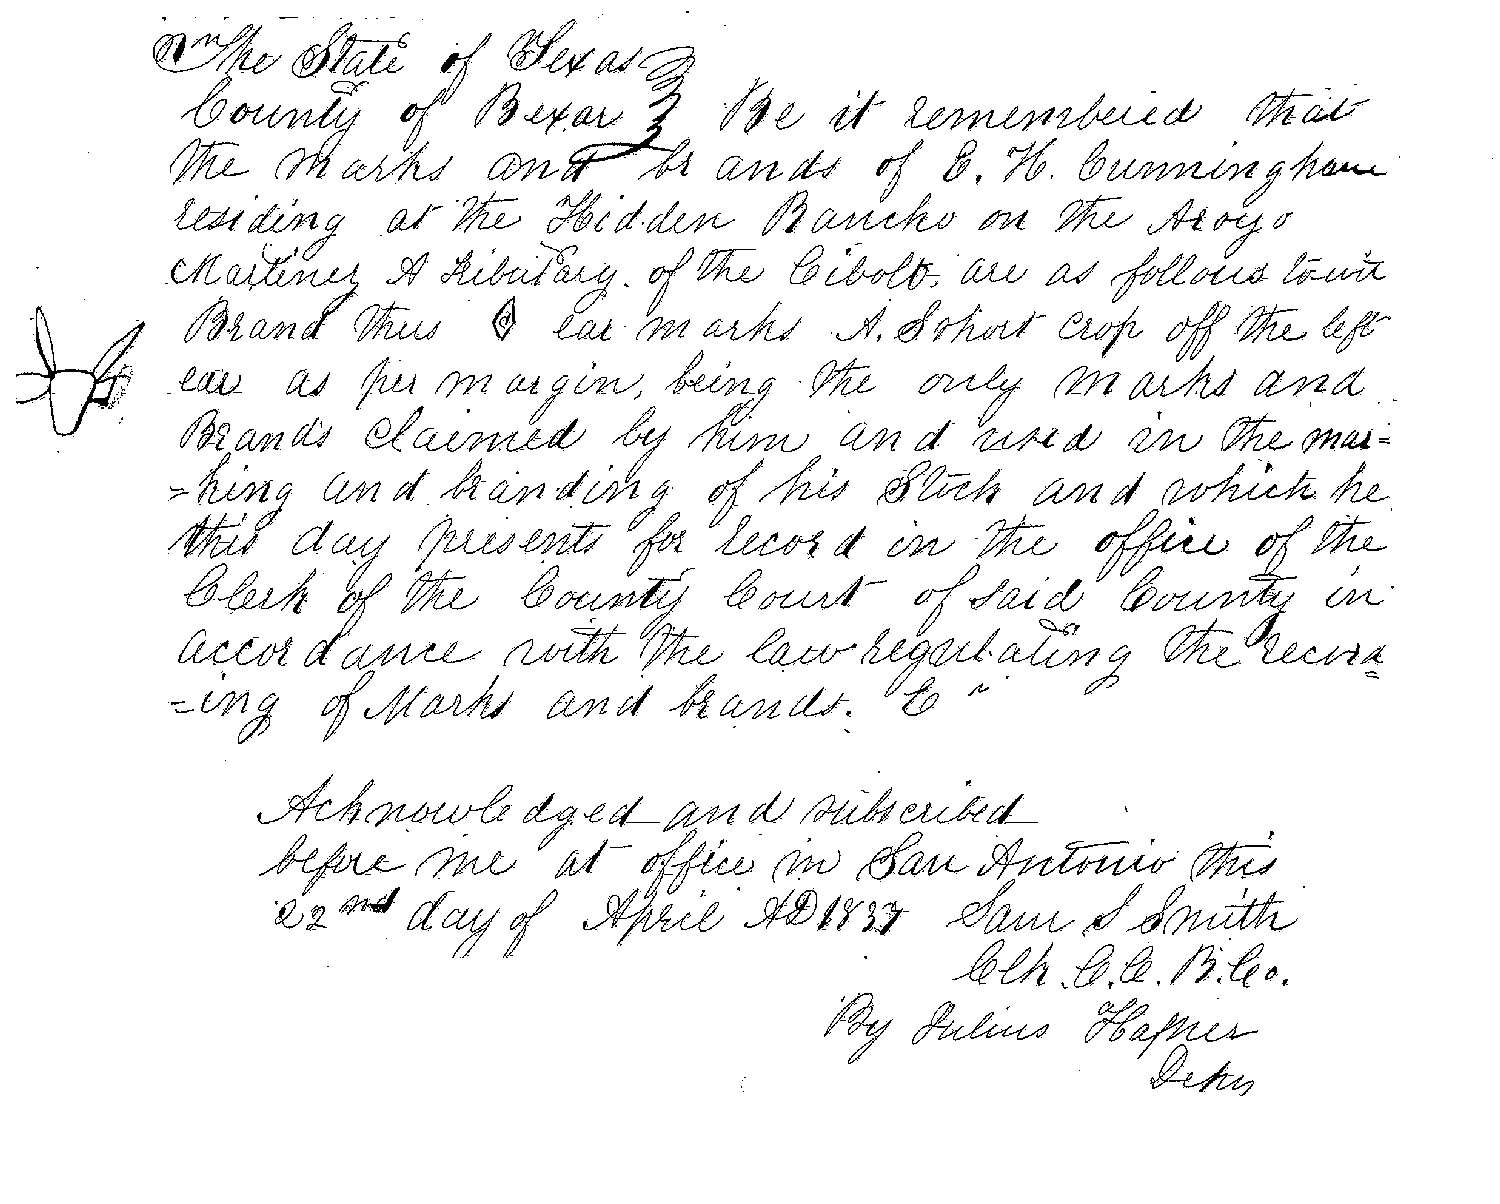 The State of Texas
County of Bexar Be it remembered that
the marks and brands of E. H. Cunningham
residing at the Hidden Rancho on the Aroyo
Martinez A tributary of the Cibolo, are as follows towit
Brand thus ear marks A. Sohort crop off the left
ear as per margin, being the only marks and
Brands claimed by him and used in the mar=
=king and branding of his Stock and which he
this day presents for record in the office of the
Clerk of the County Court of said County in
accordance with the law regulating the record
=ing of Marks and brands.
Acknowledged and subscribed
before me at office in San Antonio this
22nd day of April AD Sam S Smith
Clk. C.C. B.Co.
By Julius Hafner